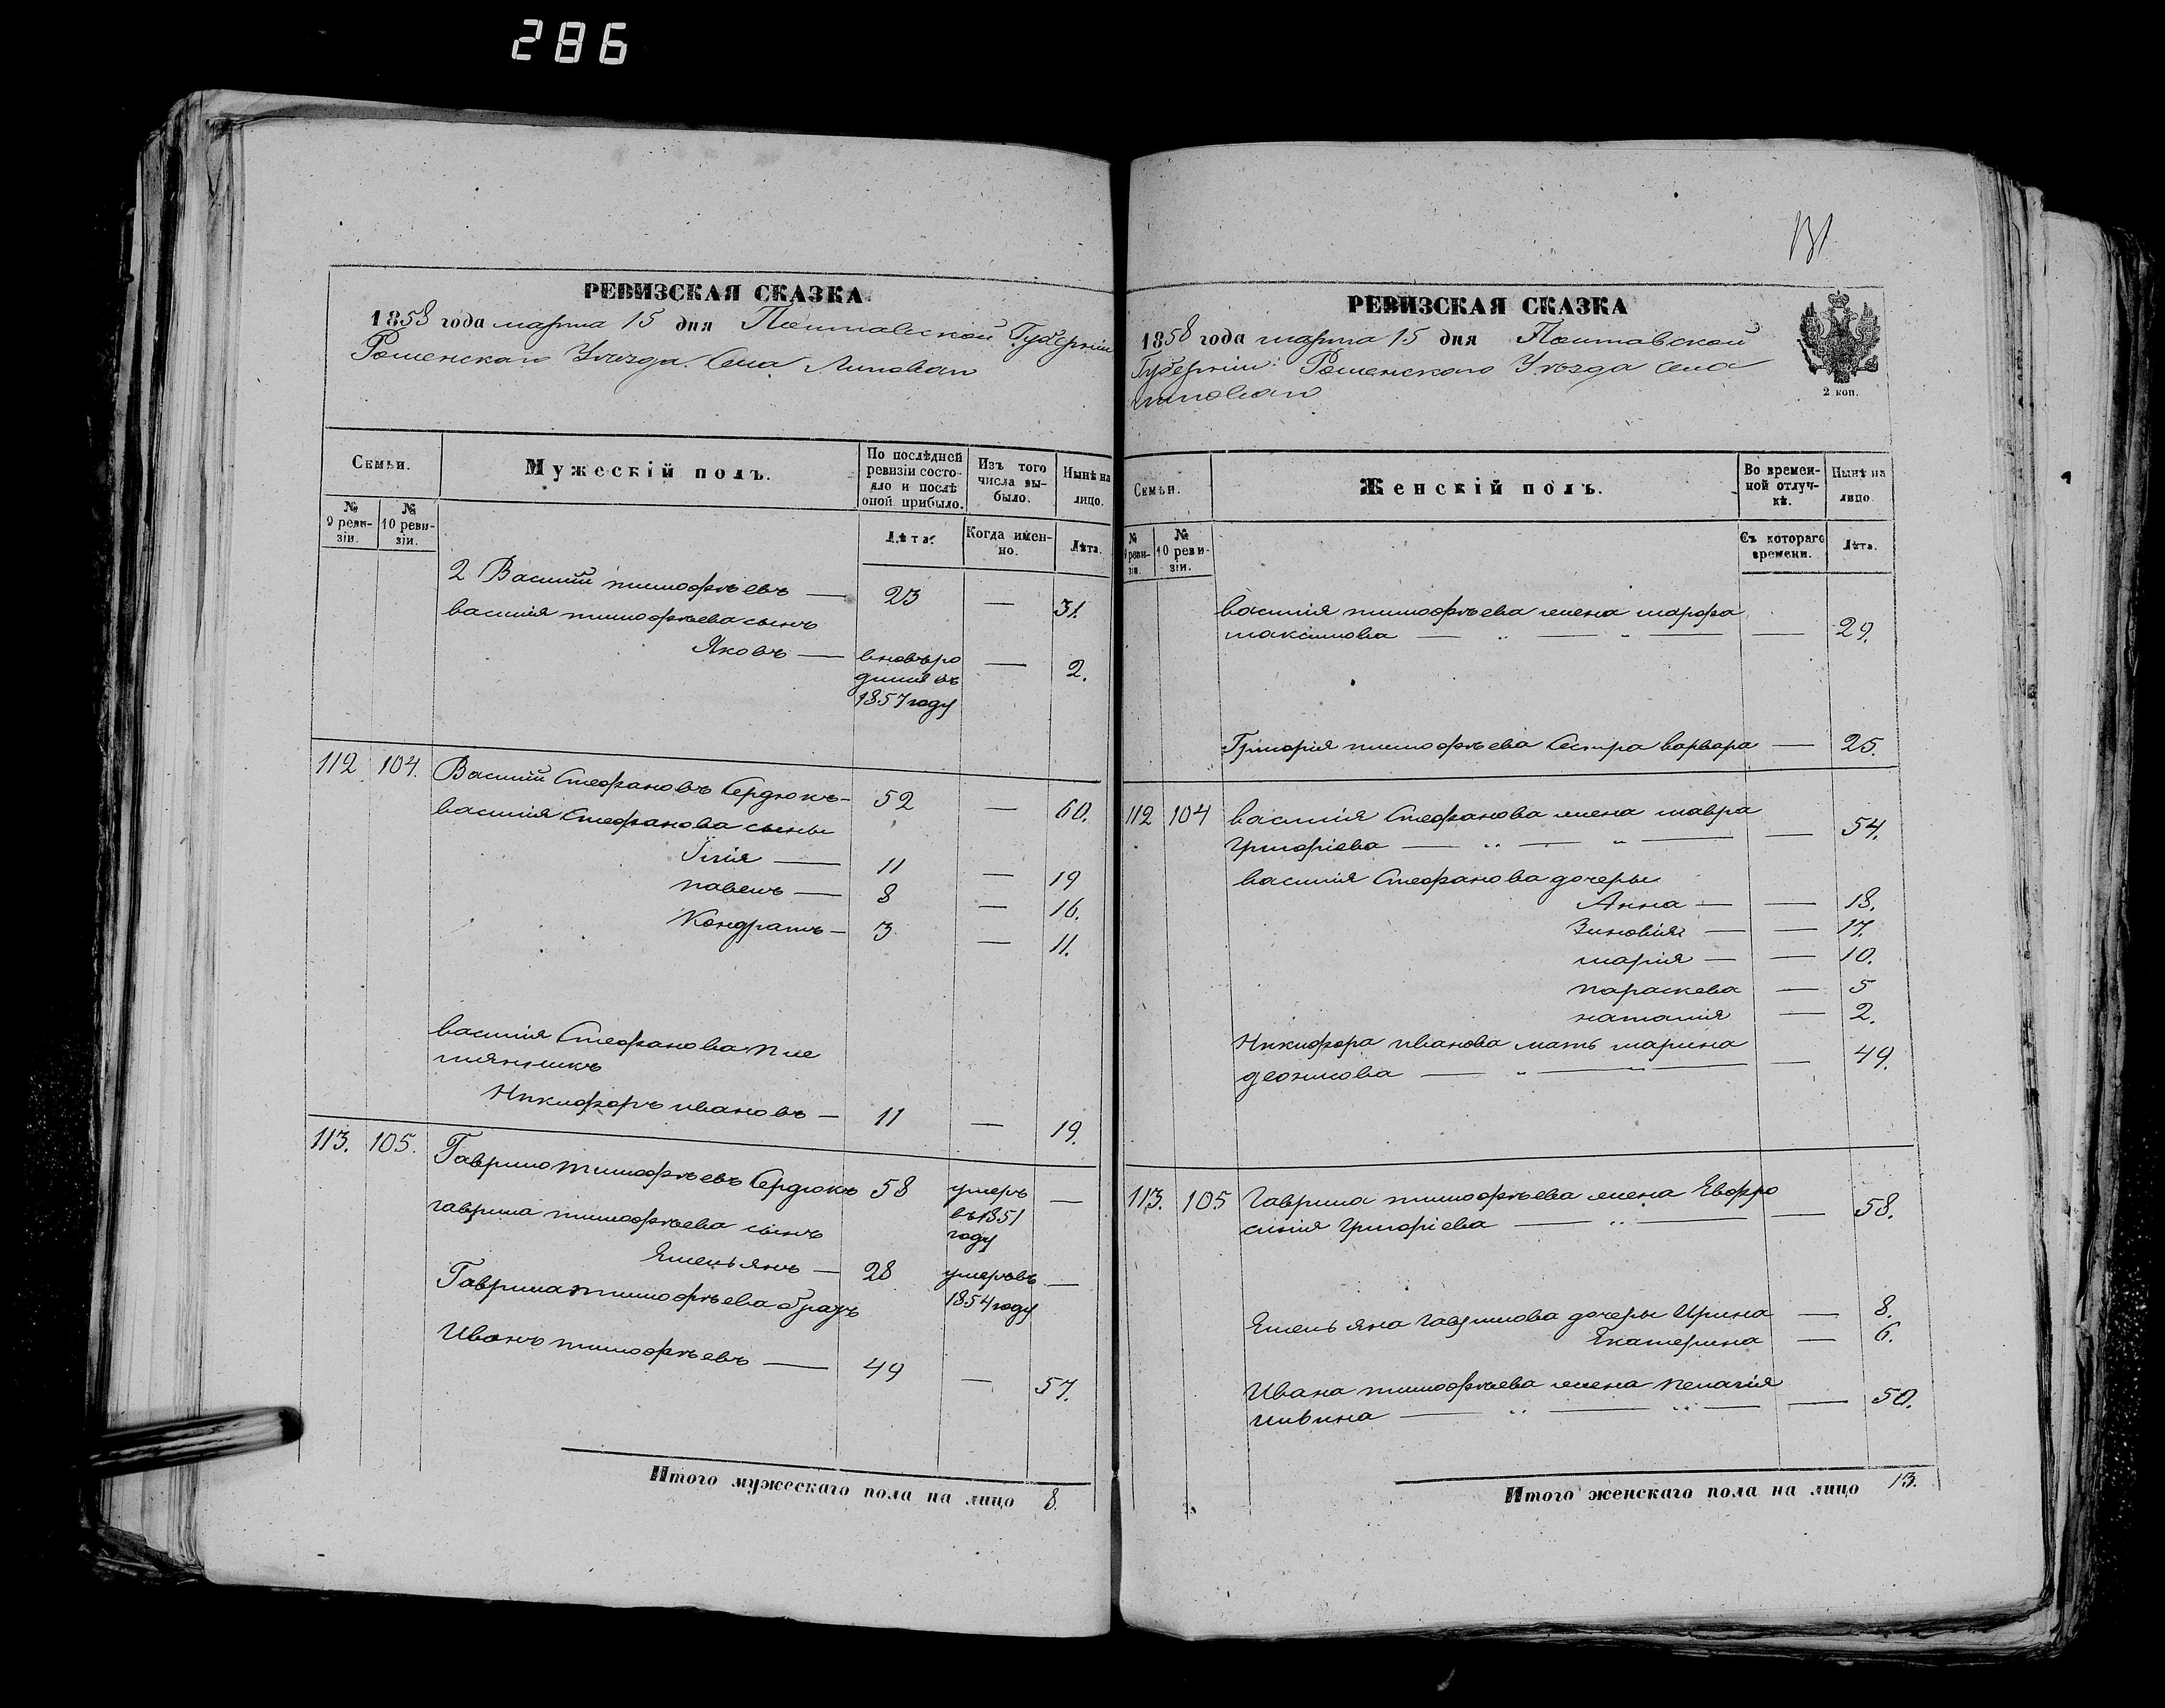 286
РЕВИЗСКАЯ СКАЗКА
1858 года марта 15 дня Полтавской Губерніи
Роменскаго Уѣзда Села Липоваго
Семьи.
Мужескій полъ.
По послѣдней ревизіи состояло и послѣ оной прибыло.
Изъ того числа выбыло.
Нынѣ на лицо.
№ 9 ревизіи.
№ 10 ревизіи.
Лѣта.
Когда именно.
Лѣта.
2 Василій тимофѣевъ — 23 — 31.
василія тимофѣева сынъ
Яковъ — вновь ро — 2.
дился въ
1857 году
112 104. Василій Стефановъ Сердюкъ — 52 — 60.
василія Стефанова сыны
Илія — 11 — 19
павелъ — 8 — 16.
Кондратъ — 3 — 11.
василія Стефанова пле
мянникъ
Никифоръ ивановъ — 11 — 19.
113. 105. Гаврило тимофѣевъ Сердюкъ 58 умеръ —
въ 1851
году
гаврила тимофѣева сынъ
Емельянъ — 28 умеръ въ —
1854 году
Гаврила тимофѣева братъ
Иванъ тимофѣевъ — 49 — 57.
Итого мужескаго пола на лицо 8.
131
РЕВИЗСКАЯ СКАЗКА
1858 года марта 15 дня Полтавской
Губерніи: Роменскаго Уѣзда Села
липоваго
2 коп.
Семьи.
Женскій полъ.
Во временной отлучкѣ.
Нынѣ на лицо.
№ 9 ревизіи.
№ 10 ревизіи.
Съ котораго времени.
Лѣта.
василія тимофѣева жена марфа
максимова — „ — „ — — 29.
Григорія тимофѣева Сестра варвара — 25.
112 104 василія Стефанова жена мавра
григоріева — „ — „ — — 54.
василія Стефанова дочеры
Анна — — 18.
Зиновія — — 17.
марія — — 10.
параскева — 5
наталія — 2.
Никифора иванова мать марина
деонисова — „ — „ — — 49.
113. 105 гаврила тимофѣева жена Евфро
синія григоріева — „ — — 58.
Емельяна гаврилова дочеры Ирина — 8.
Екатерина — 6.
Ивана тимофѣева жена пелагія
— „ — „ — — 50.
Итого женскаго пола на лицо 13.